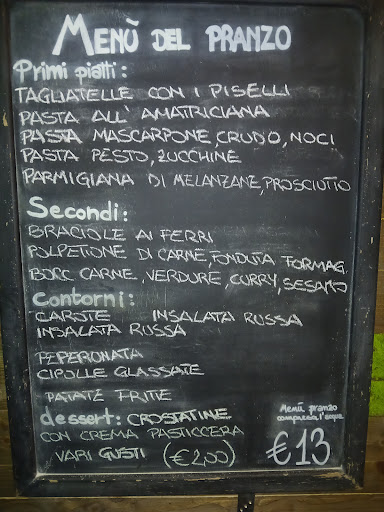 Menù del pranzo
Primi piatti:
TAGLIATELLE CON I PISELLI
PASTA ALL' AMATRICIANA
PASTA MASCARPONE, CRUDO, NOCI
PASTA PESTO, ZUCCHINE
PARMIGIANA DI MELANZANE, PROSCIUTTO
Secondi:
BRACIOLE AI FERRI
POLPETTONE DI CARNE, FONDUTA FORMAG.
BOCC CARNE, VERDURE, CURRY, SESAMO
Contorni:
CAROTE INSALATA RUSSA
INSALATA RUSSA
PEPERONATA
CIPOLLE GLASSATE
PATATE FRITTE
dessert: CROSTATINE
CON CREMA PASTICCERA
VARI GUSTI (€2,00)
Menù pranzo
compresa l'acqua
€13